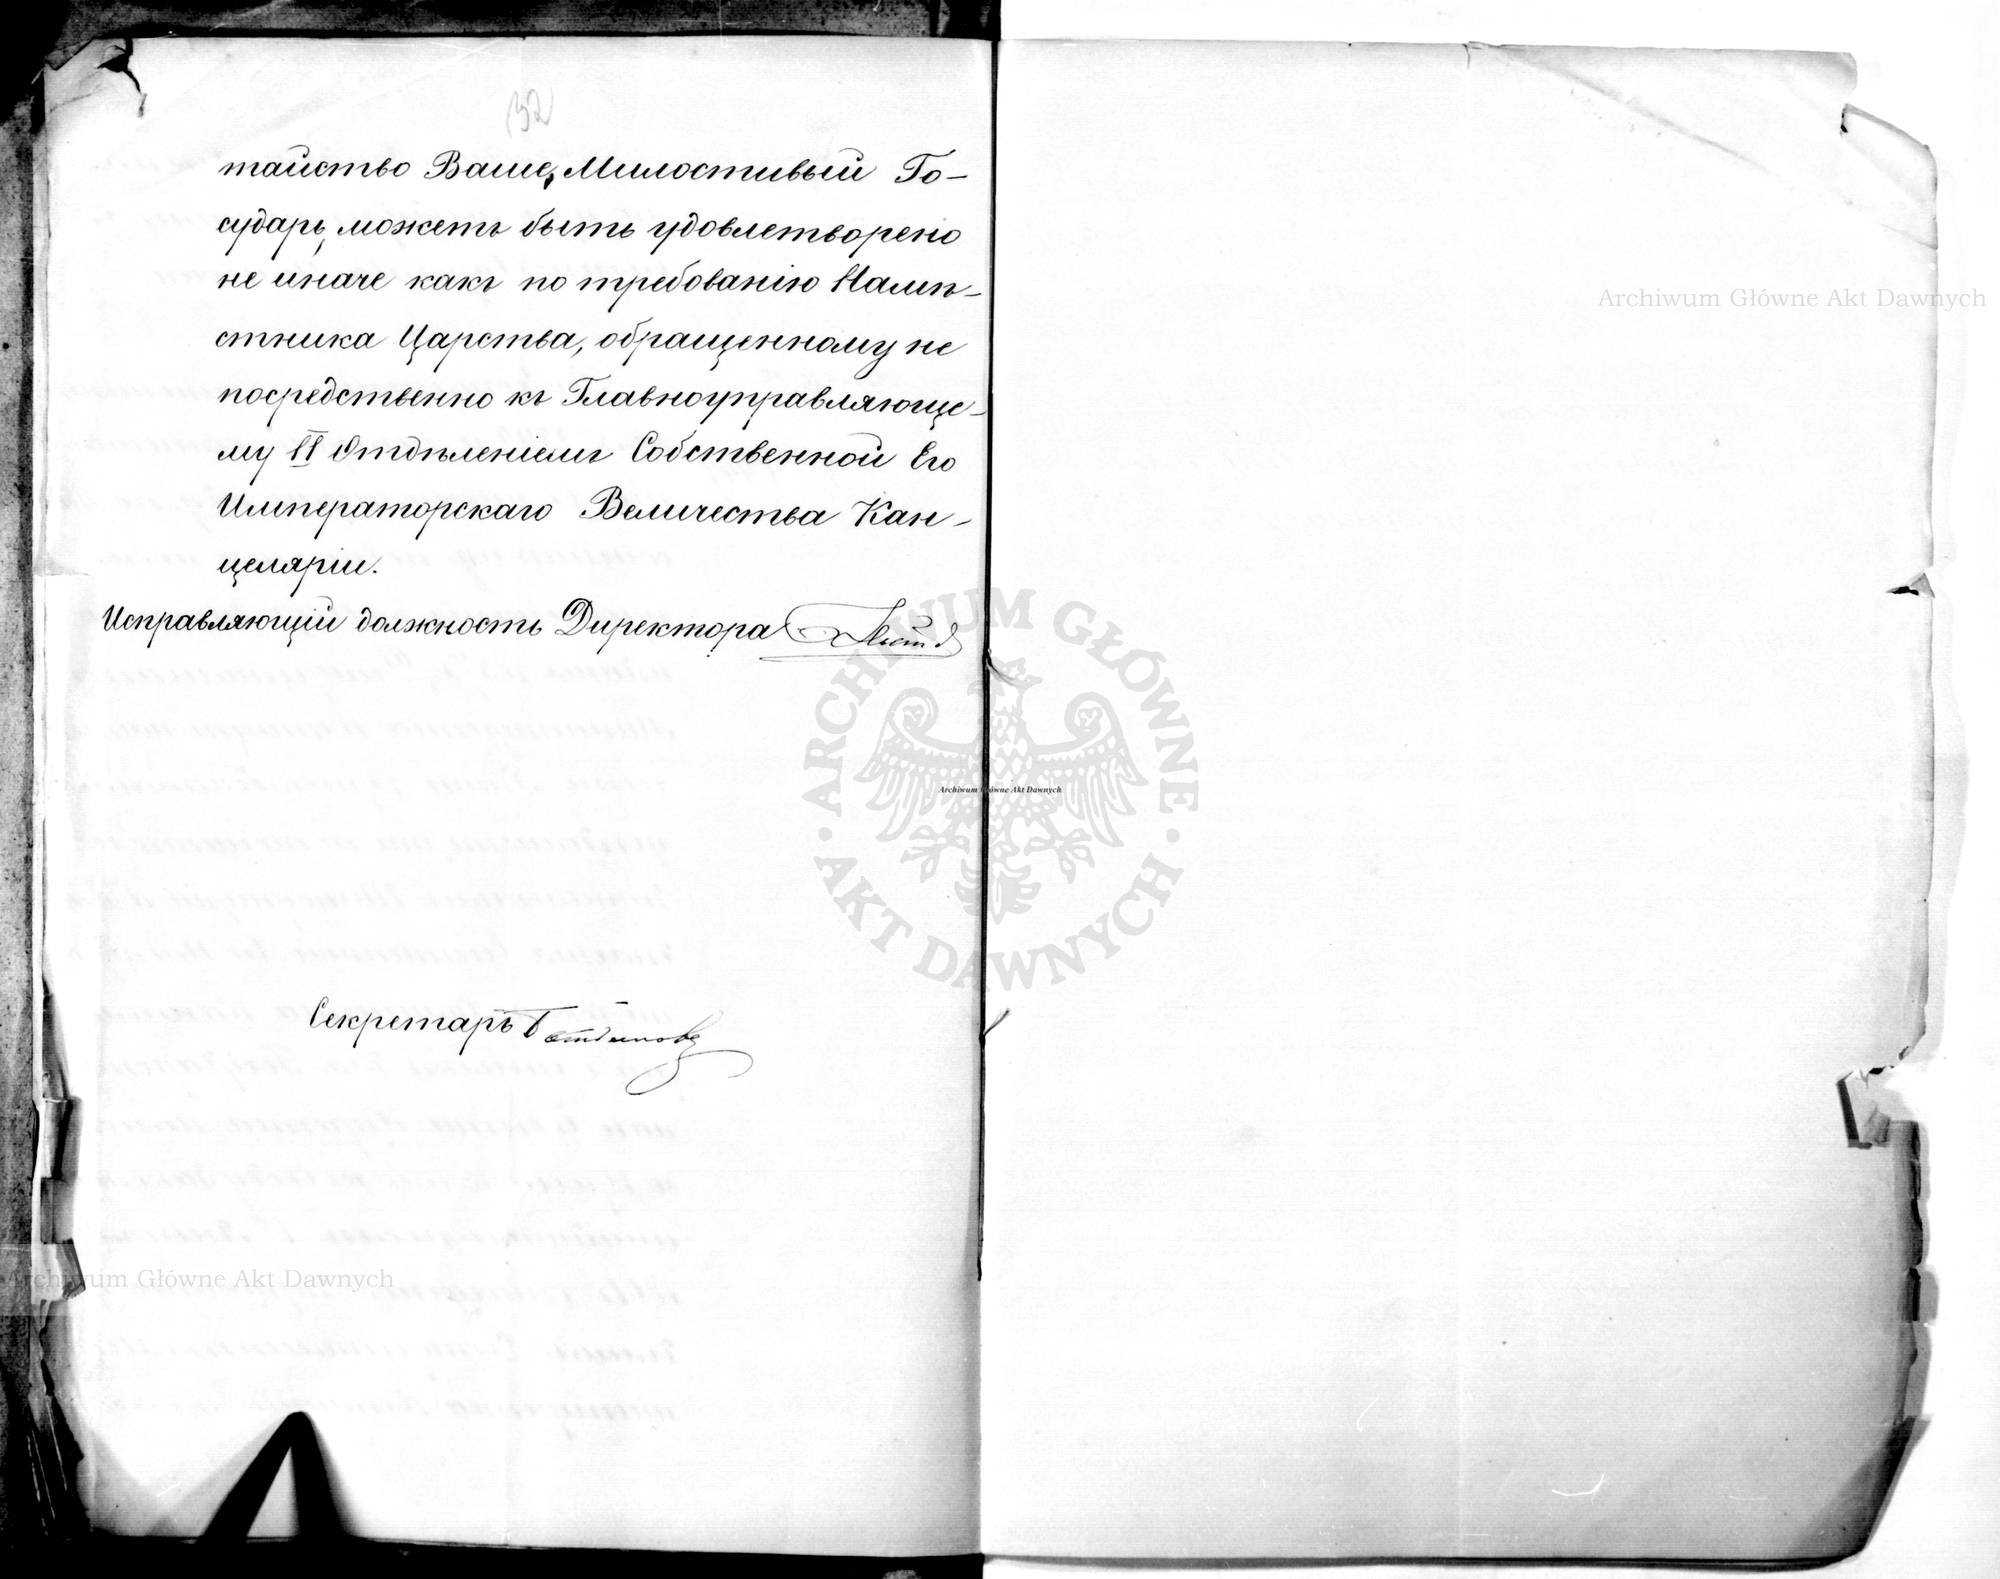 132
тайство Ваше, Милостивый Го-
сударь, можетъ быть удовлетворено
не иначе какъ по требованію Намѣ-
стника Царства, обращенному не
посредственно къ Главноуправляюще-
му II Отдѣленіемъ Собственной Его
Императорскаго Величества Кан-
целяріи.
Исправляющій должность Директора
Секретарь
Archiwum Główne Akt Dawnych
ARCHIWUM GŁÓWNE
AKT DAWNYCH
Archiwum Główne Akt Dawnych
Archiwum Główne Akt Dawnych